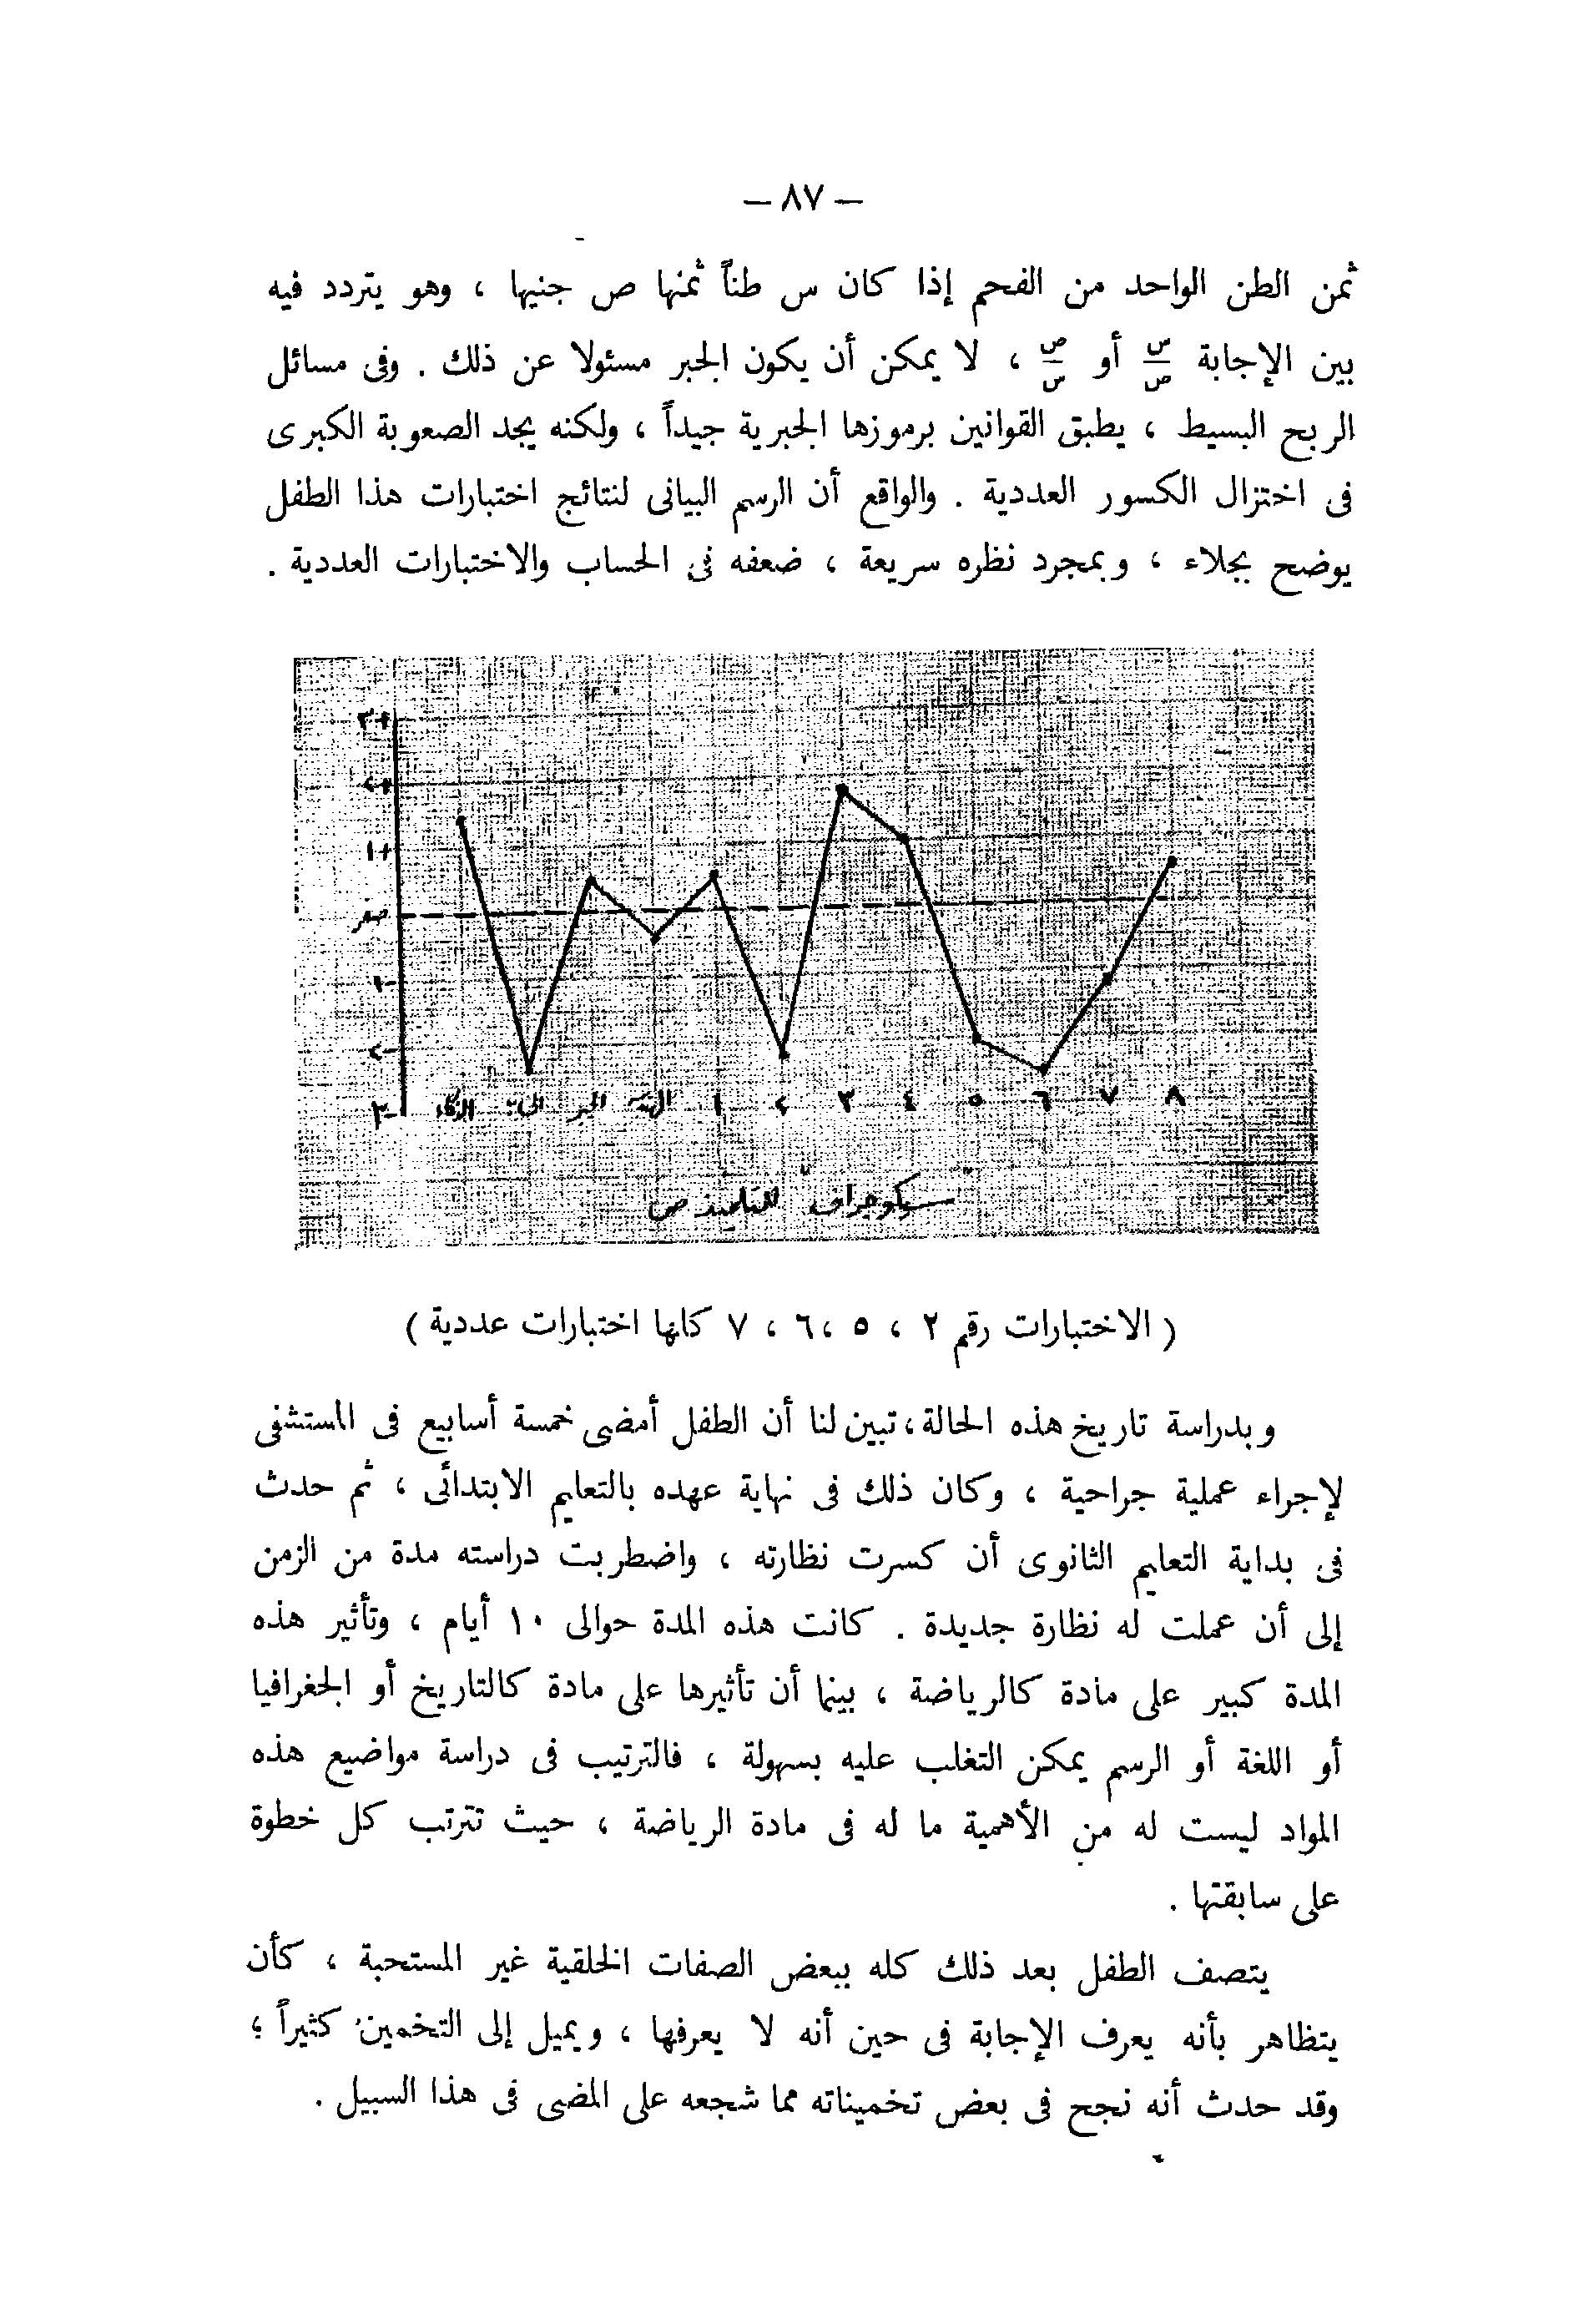 — ٨٧ —
ثمن الطن الواحد من الفحم إذا كان س طناً ثمنها ص جنيها ، وهو يتردد فيه
بين الإجابة س/ص أو ص/س ، لا يمكن أن يكون الجبر مسئولا عن ذلك . وفى مسائل
الربح البسيط ، يطبق القوانين برموزها الجبرية جيداً ، ولكنه يجد الصعوبة الكبرى
فى اختزال الكسور العددية . والواقع أن الرسم البيانى لنتائج اختبارات هذا الطفل
يوضح بجلاء ، وبمجرد نظره سريعة ، ضعفه فى الحساب والاختبارات العددية .
٣+
٢+
١+
صفر
١-
٢-
٣-
الذكاء الحساب الجبر الهندسة ١ ٢ ٣ ٤ ٥ ٦ ٧ ٨
"سيكوجراف" للتلميذ ص
( الاختبارات رقم ٢ ، ٥ ،٦ ، ٧ كلها اختبارات عددية )
وبدراسة تاريخ هذه الحالة ، تبين لنا أن الطفل أمضى خمسة أسابيع فى المستشفى
لإجراء عملية جراحية ، وكان ذلك فى نهاية عهده بالتعليم الابتدائى ، ثم حدث
فى بداية التعليم الثانوى أن كسرت نظارته ، واضطربت دراسته مدة من الزمن
إلى أن عملت له نظارة جديدة . كانت هذه المدة حوالى ١٠ أيام ، وتأثير هذه
المدة كبير على مادة كالرياضة ، بينما أن تأثيرها على مادة كالتاريخ أو الجغرافيا
أو اللغة أو الرسم يمكن التغلب عليه بسهولة ، فالترتيب فى دراسة مواضيع هذه
المواد ليست له من الأهمية ما له فى مادة الرياضة ، حيث تترتب كل خطوة
على سابقتها .
يتصف الطفل بعد ذلك كله ببعض الصفات الخلقية غير المستحبة ، كأن
يتظاهر بأنه يعرف الإجابة فى حين أنه لا يعرفها ، ويميل إلى التخمين كثيراً ؛
وقد حدث أنه نجح فى بعض تخميناته مما شجعه على المضى فى هذا السبيل .